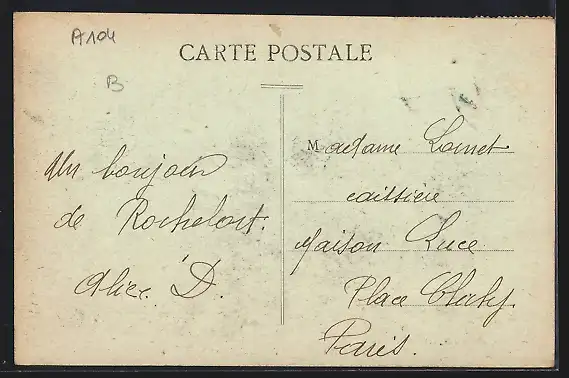 A104
B
CARTE POSTALE
Un bonjour
de Rochefort.
Alice. D.
Madame Lornet
caissière
Maison Luce
Place Clichy
Paris.